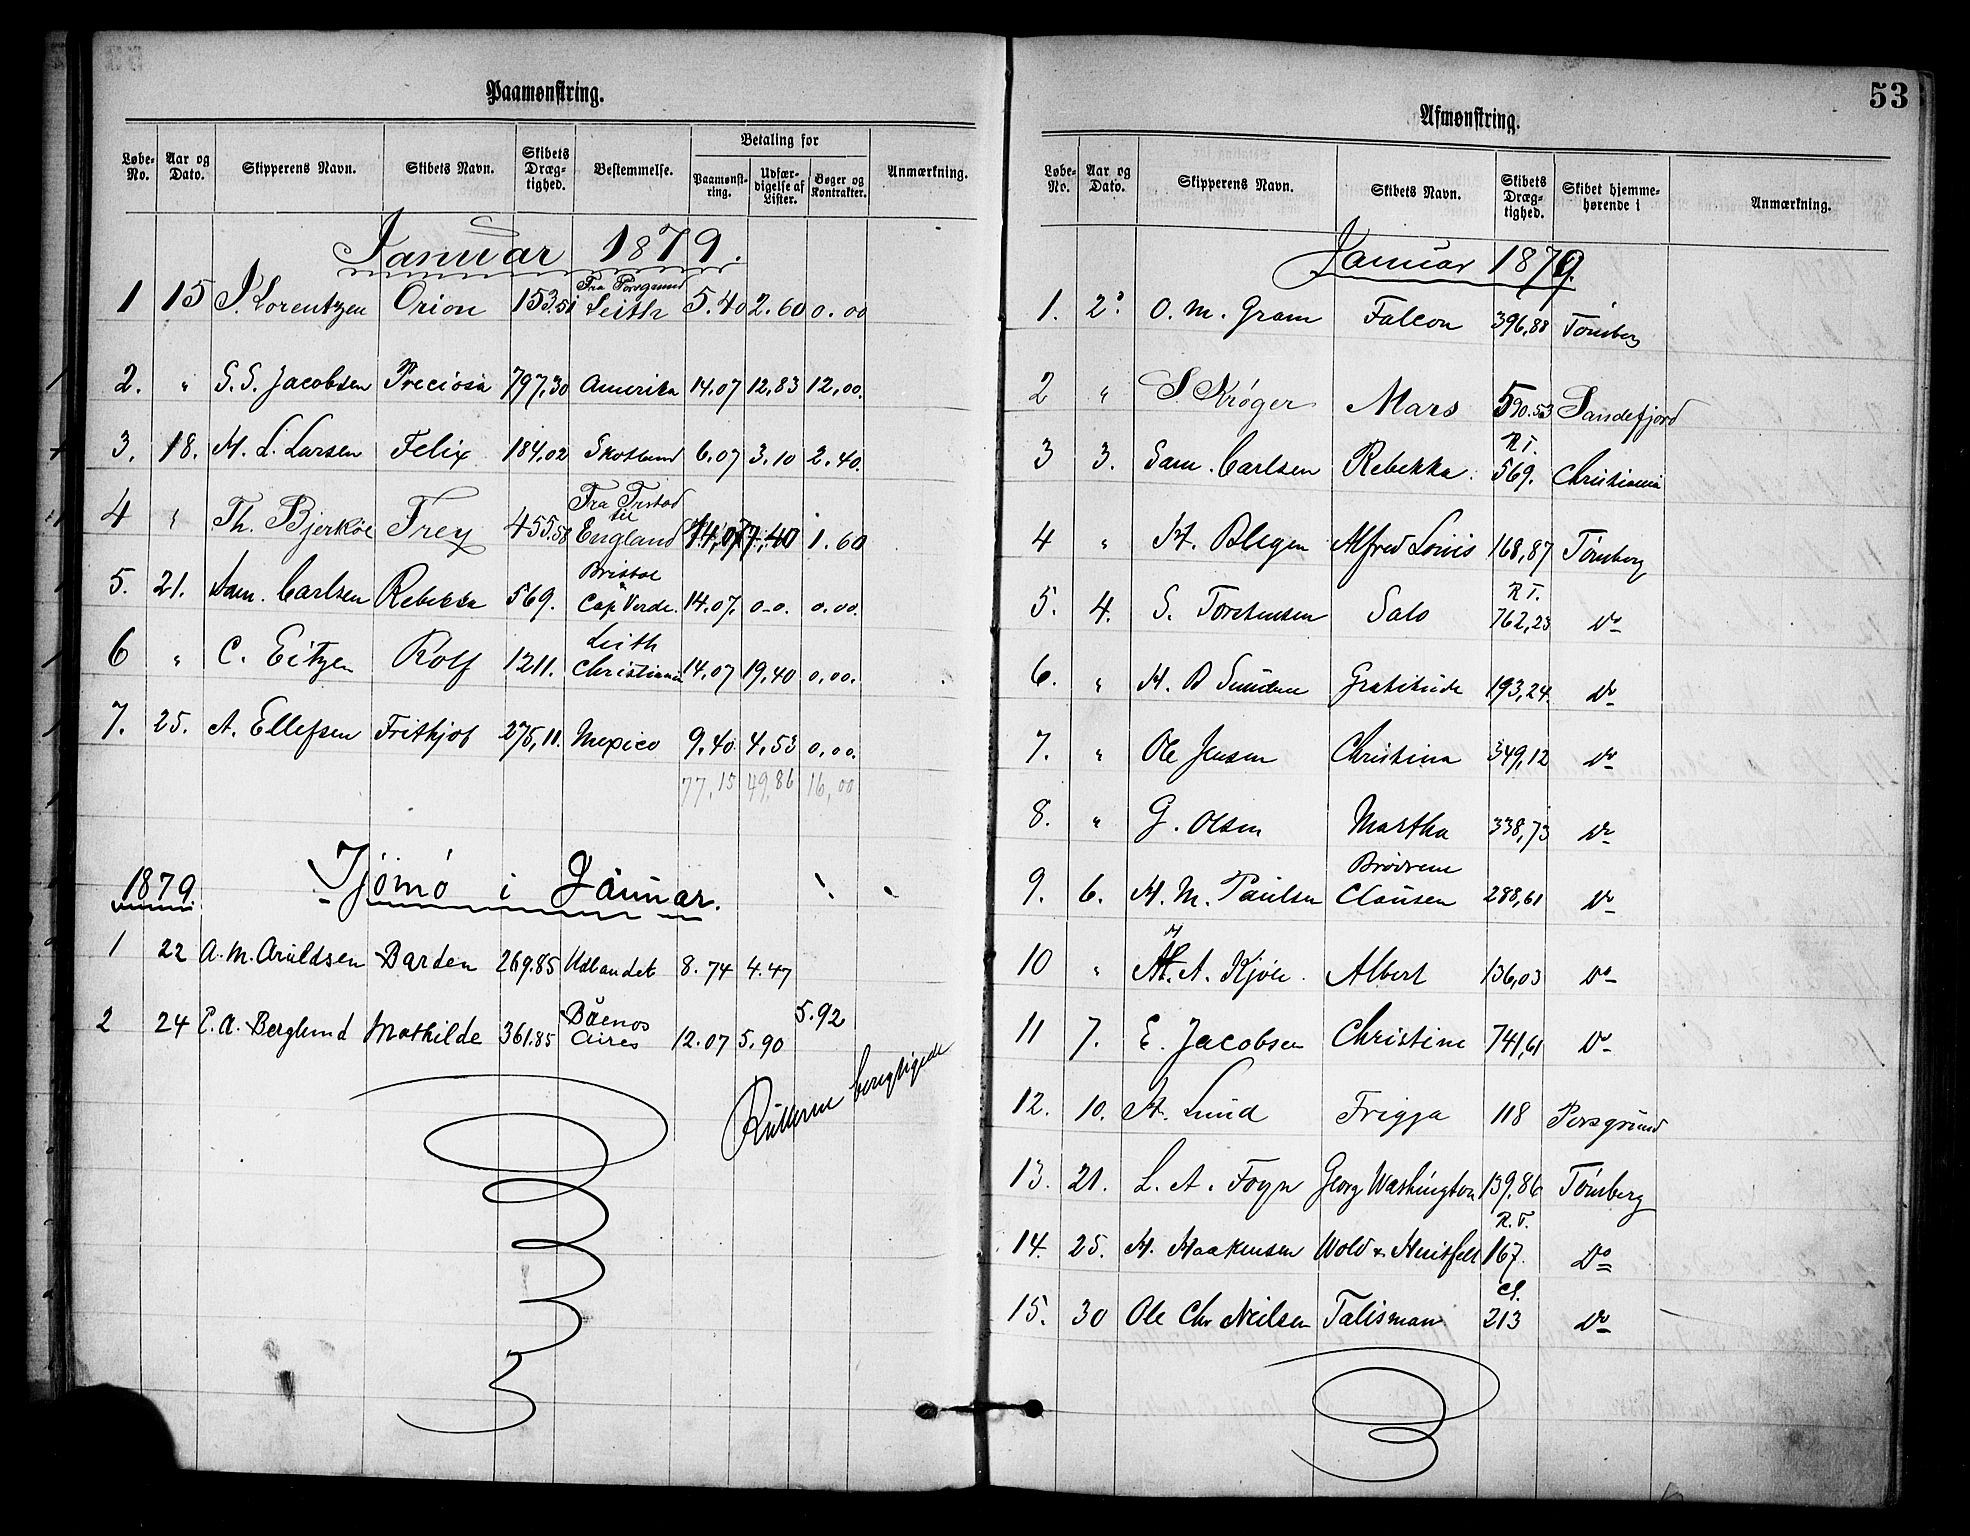 53
Paamønstring.
Løbe-No. Aar og Dato. Skipperens Navn. Skibets Navn. Skibets Dræg-tighed. Bestemmelse. Betaling for Paamønst-ring. Udfær-digelse af Lister. Bøger og Kontrakter. Anmærkning.
Januar 1879.
1 15 J. Lorentzen Orion 153.51 Fra Porsgrund Leith 5.40 2.60 0.00
2. " S. S. Jacobsen Preciosa 797,30 Amerika 14.07 12,83 12,00.
3. 18. M. L. Larsen Felix 184,02 Skotland 6.07 3.10 2.40.
4 " Th. Bjerköe Frey 455.58 Fra til England 14,07 7,40 1.60
5. 21. Sam. Carlsen Rebekka 569. Bristol Cap Verde. 14.07. 0-0. 0.00.
6 " C. Eitzen Rolf 1211. Leith Christiania 14.07 19,40 0,00.
7. 25. A. Ellefsen Frithjof 275,11. Mexico 9.40 4,53 0,00.
77,15 49,86 16,00
1879. Tjömö i Januar.
1 22 A. M. Aruldsen Barden 269.85 Udlandet 8.74 4.47
2 24 P. A. Berglund Mathilde 361.85 Buenos Aires 12.07 5.90 5.92
Afmønstring.
Løbe-No. Aar og Dato. Skipperens Navn. Skibets Navn. Skibets Dræg-tighed. Skibet hjemme-hørende i Anmærkning.
Januar 1879.
1. 2. O. M. Gram Falcon 396,88 Tönsberg
2 " S Krøger Mars 590.53 Sandefjord
3 3. Sam. Carlsen Rebekka. R T. 569. Christiania
4 " H. Blegen Alfred Louis 168,87 Tönsberg
5. 4. S. Torstensen Salo R T. 762,23 Do
6. " Gratitude 193,24. Do
7. " Ole Jensen Christina 349,12 Do
8. " G. Olsen Martha 338,73 Do
9. 6. H. M. Paulsen Brödrene Clausen 288,61 Do
10 " A. Kjøle. Albert 136,03 Do
11 7. E. Jacobsen Christine 741,61 Do
12. 10. H. Lund Frigga 118 Porsgrund
13. 21. L. A. Foyn Georg Washington 139,86 Tönsberg
14. 25. H. Haakensen Wold & Huitfelt R. T. 167. Do
15. 30 Ole Chr Neilsen Talisman Cl. 213 Do